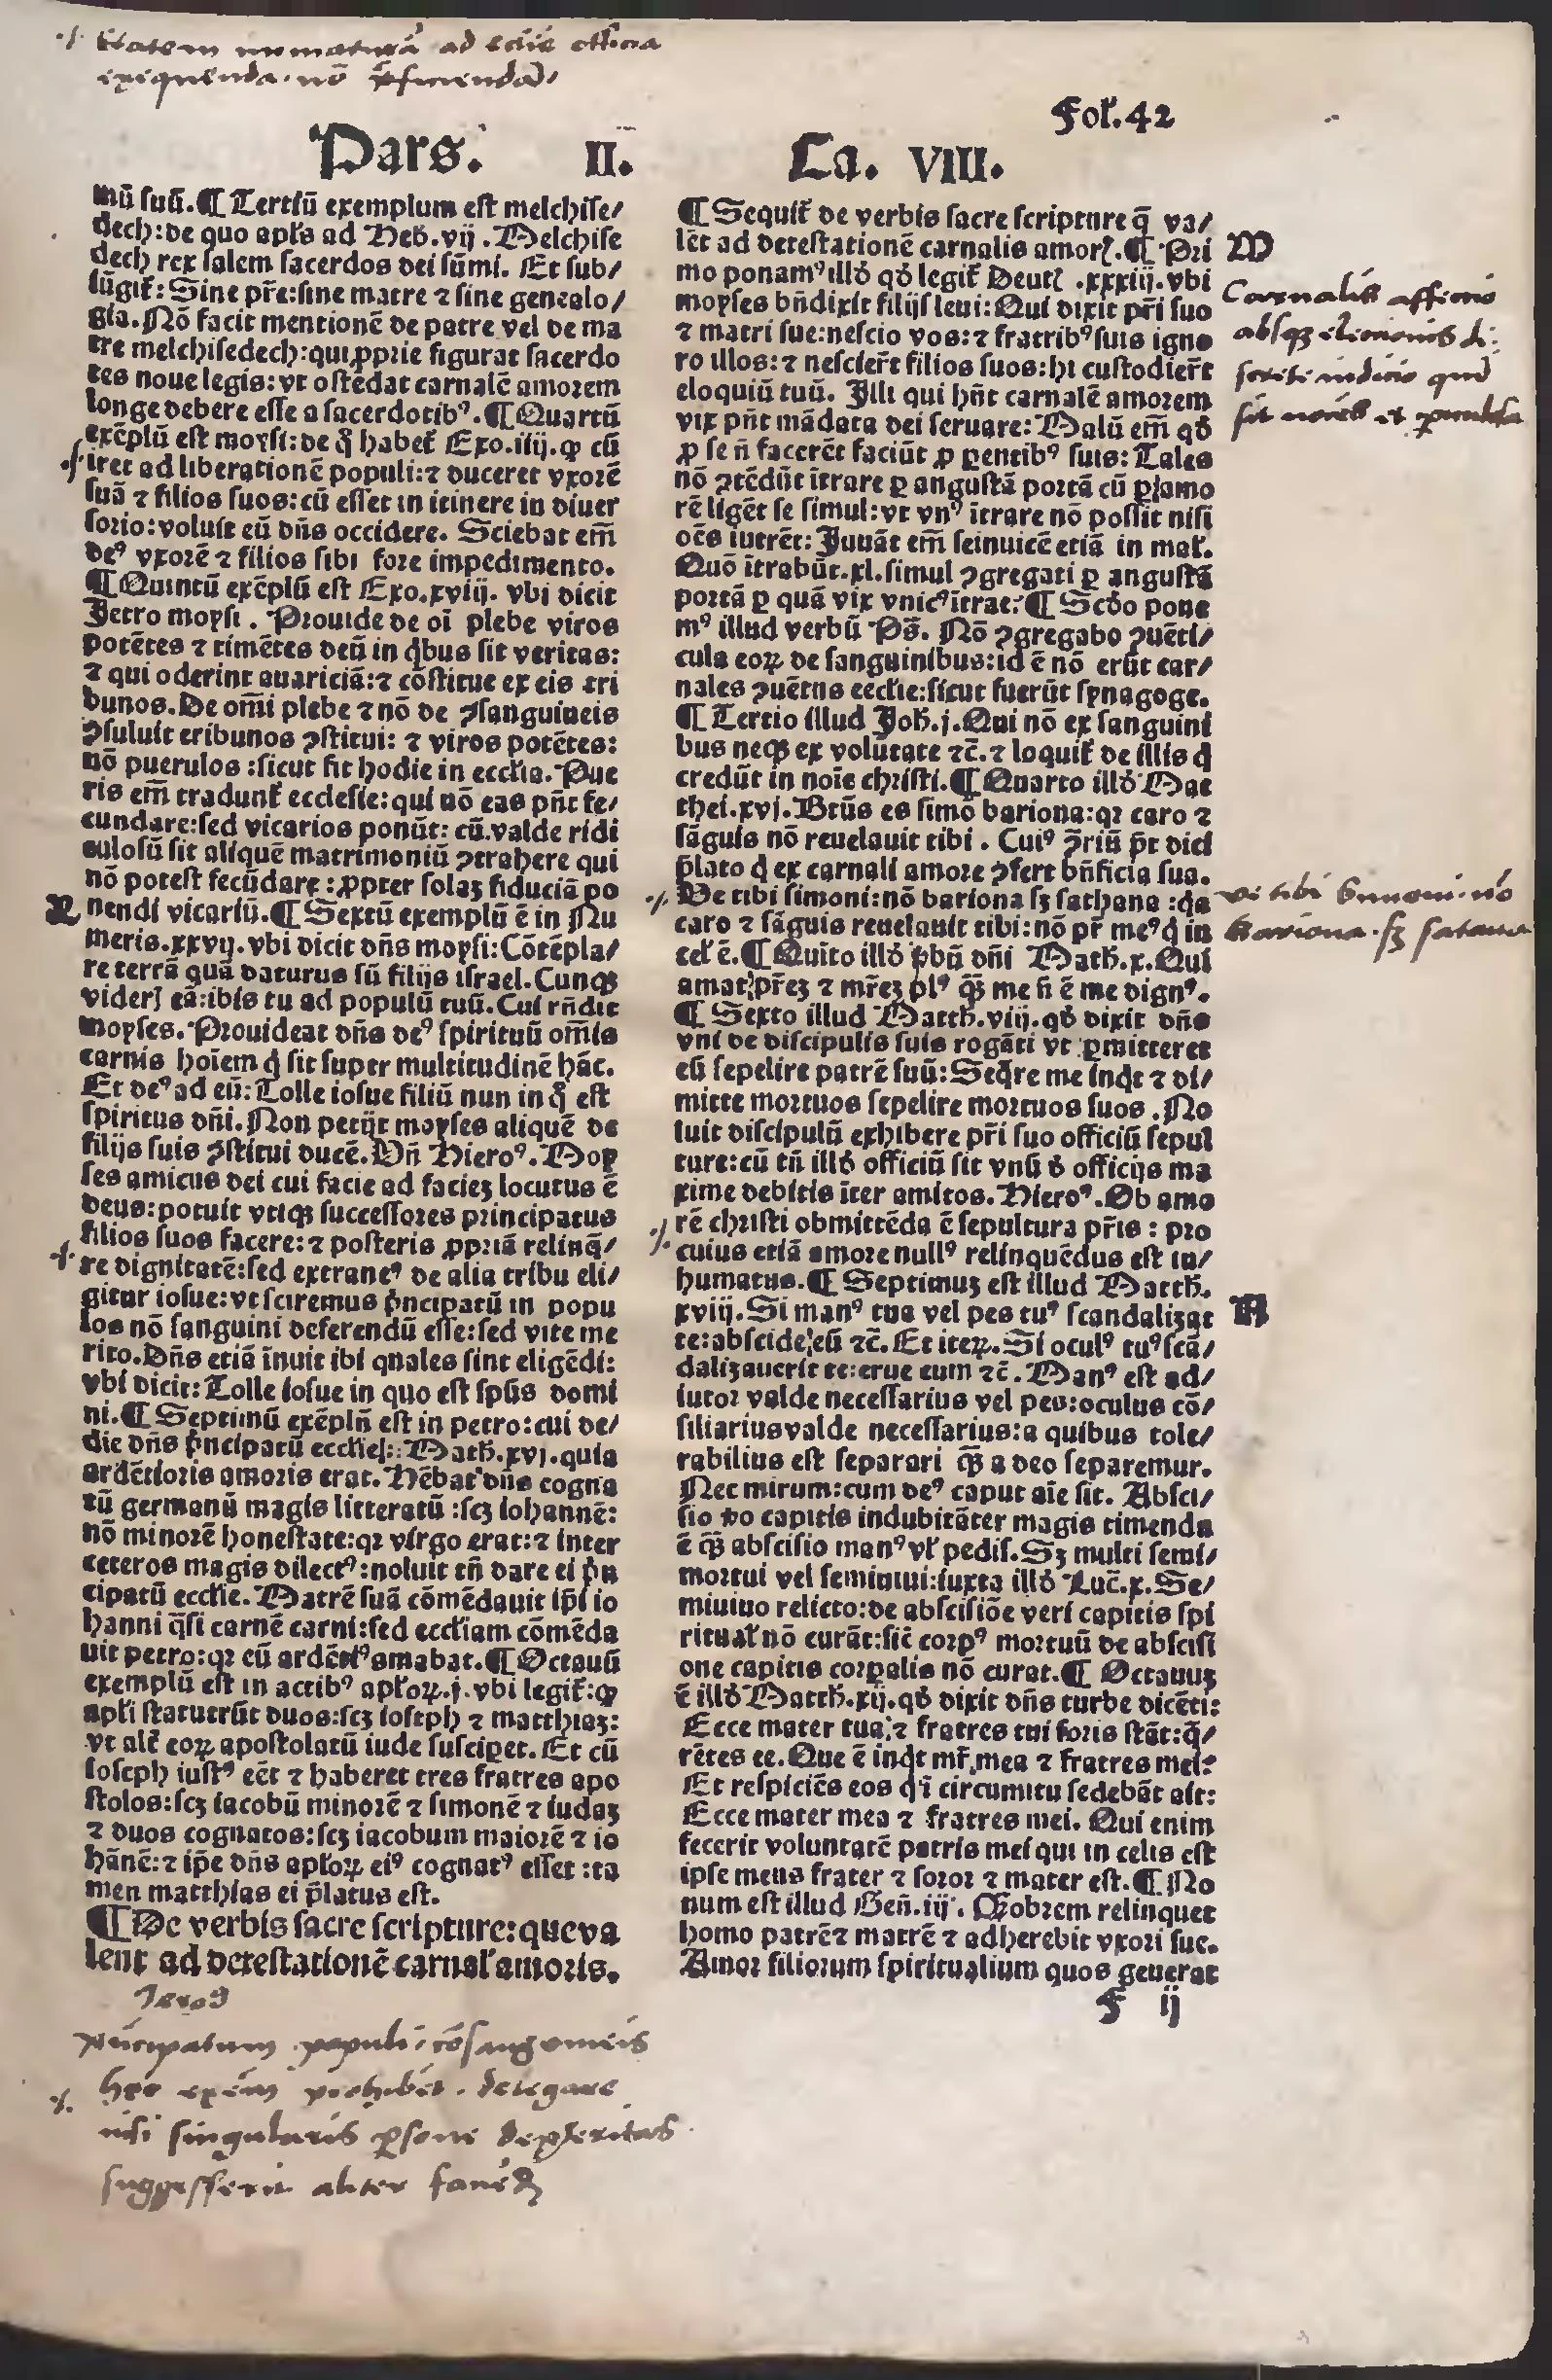 Etatem immaturã ad eccie officia
exequenda nō p̄ficiendã
Fol'.42
Pars. II. Ca. VIII.
mū suū.¶ Tertiū exemplum est melchise/
dech:de quo apl's ad Heb̄.vij.Melchise
dech rex salem sacerdos dei sūmi. Et sub/
iūgit᷑: Sine pr̄e:sine matre ⁊ sine genealo/
gia.Nō facit mentionē de patre vel de ma
tre melchisedech:qui ꝓprie figurat sacerdo
tes noue legis:vt ostēdat carnalē amorem
longe debere esse a sacerdotibꝰ.¶ Quartū
exēplū est moysi:de q̊ habet᷑ Exo.iiij.ꝙ cū
iret ad liberationē populi:⁊ duceret vxorē
suā ⁊ filios suos:cū esset in itinere in diuer
sorio:voluit eū dn̄s occidere. Sciebat em̄
deꝰ vxorē ⁊ filios sibi fore impedimento.
¶ Quintū exēplū est Exo.xviij. vbi dicit
Jetro moysi. Prouide de oī plebe viros
potētes ⁊ timētes deū in q̇bus sit veritas:
⁊ qui oderint auariciā:⁊ cōstitue ex eis tri
bunos.De om̄i plebe ⁊ nō de ꝯsanguineis
ꝯsuluit tribunos ꝯstitui: ⁊ viros potētes:
nō puerulos :sicut fit hodie in eccl'ia. Pue
ris em̄ tradunt᷑ ecclesie:qui nō eas pn̄t fe/
cundare:sed vicarios ponūt: cū.valde ridi
culosū sit aliquē matrimoniū ꝯtrahere qui
nō potest fecūdare :ꝓpter solaȝ fiduciā po
nendi vicariū.¶ Sextū exemplū ē in Nu
meris.xxvij.vbi dicit dn̄s moysi:Cōtēpla/
re terrā quā daturus sū filijs israel.Cunqꝫ
videris eā:ibis tu ad populū tuū.Cui rn̄dit
moyses. Prouideat dn̄s deꝰ spirituū om̄is
carnis hoīem q̇ sit super multitudinē hāc.
Et deꝰ ad eū:Tolle iosue filiū nun in q̊ est
spiritus dn̄i.Non petijt moyses aliquē de
filijs suis ꝯstitui ducē.Vn̄ Hieroꝰ.Moy
ses amicus dei cui facie ad facieȝ locutus ē
deus:potuit vtiqꝫ successores principatus
filios suos facere:⁊ posteris ꝓpriā relinq̄/
re dignitatē:sed extraneꝰ de alia tribu eli/
gitur iosue:vt sciremus p̓ncipatū in popu
los nō sanguini deferendū esse:sed vite me
rito.Dn̄s etiā īnuit ibi quales sint eligēdi:
vbi dicit:Tolle iosue in quo est sp̄us domi
ni.¶ Septimū exēplū est in petro:cui de/
dit dn̄s p̓ncipatū eccl'ie: Math̄.xvj.quia
ardētioris amoris erat. Hēbat dn̄s cogna
tū germanū magis litteratū :scȝ iohannē:
nō minorē honestate:qꝛ virgo erat:⁊ inter
ceteros magis dilectꝰ:noluit tn̄ dare ei p̓n
cipatū eccl'ie. Matrē suā cōmēdauit ip̄i io
hanni q̄si carnē carni:sed eccl'iam cōmēda
uit petro:qꝛ eū ardētiꝰ amabat.¶ Octauū
exemplū est in actibꝰ apl'oꝝ.j.vbi legit᷑:ꝙ
apl'i statuerūt duos:scȝ ioseph ⁊ matthiaȝ:
vt alt᷑ eoꝝ apostolatū iude susciperet. Et cū
Ioseph iustꝰ eēt ⁊ haberet tres fratres apo
stolos:scȝ iacobū minorē ⁊ simonē ⁊ iudaȝ
⁊ duos cognatos:scȝ iacobum maiorē ⁊ io
hānē:⁊ ip̄e dn̄s apl'oꝝ eiꝰ cognatꝰ esset :ta
men matthias ei p̄latus est.
¶ De verbis sacre scripture:que va
lent ad detestationē carnal' amoris.
Jeroꝰ
Principatum populi cōsanguineis
hoc exēm prohibet delegare
nisi singularis ꝑsone dexteritas
suggesserit aliter
¶ Sequit᷑ de verbis sacre scripture q̄ va/
lēt ad detestationē carnalis amorꝭ.¶ Pri
mo ponamꝰ illd̓ qd̓ legit᷑ Deutꝭ.xxxiij.vbi
moyses bn̄dixit filijs leui:Qui dixit pr̄i suo
⁊ matri sue:nescio vos:⁊ fratribꝰ suis igno
ro illos:⁊ nescier̄t filios suos:hi custodier̄t
eloquiū tuū. Illi qui hn̄t carnalē amorem
vix pn̄t mādata dei seruare: Malū em̄ qd̓
ꝓ se n̄ facerēt faciūt ꝓ ꝑentibꝰ suis: Tales
nō ꝯtēdūt ītrare ꝑ angustā portā cū ꝑ amo
rē ligēt se simul:vt vnꝰ ītrare nō possit nisi
oēs iutrēt: Juuāt em̄ seinuicē etiā in mal'.
Quō ītrabūt.xl.simul ꝯgregati ꝑ angustā
portā ꝑ quā vix vnicꝰ ītrat?¶ Scd̓o pone
mꝰ illud verbū Ps̄. Nō ꝯgregabo ꝯuēti/
cula eoꝝ de sanguinibus:id ē nō erūt car/
nales ꝯuētus eccl'ie:sicut fuerūt synagoge.
¶ Tertio illud Joh̄.j.Qui nō ex sanguini
bus neqꝫ ex volūtate ⁊c̄.⁊ loquit᷑ de illis q̇
credūt in noīe christi.¶ Quarto illd̓ Mat
thei.xvj.Bt̄us es simō bariona:qꝛ caro ⁊
sāguis nō reuelauit tibi. Cuiꝰ ꝯriū pt̄ dici
p̄lato q̇ ex carnali amore ꝯfert bn̄ficia sua.
Ve tibi simoni:nō bariona sȝ sathana :qa
caro ⁊ sāguis reuelauit tibi:nō pr̄ meꝰ q̇ in
cel' ē.¶ Quīto illd̓ v̓bū dn̄i Math̄.x.Qui
amat pr̄eȝ ⁊ mr̄eȝ plꝰ q̄ȝ me n̄ ē me dignꝰ.
¶ Sexto illud Matth̄.viij.qd̓ dixit dn̄s
vni de discipulis suis rogāti vt ꝑmitteret
eū sepelire patrē suū:Seq̄re me inq̇t ⁊ di/
mitte mortuos sepelire mortuos suos.No
luit discipulū exhibere pr̄i suo officiū sepul
ture:cū tn̄ illd̓ officiū sit vnū d̓ officijs ma
xime debitis īter amicos.Hieroꝰ.Ob amo
rē christi obmittēda ē sepultura pr̄is : pro
cuius etiā amore nullꝰ relinquēdus est in/
humatus.¶ Septimuȝ est illud Matth̄.
xviij.Si manꝰ tua vel pes tuꝰ scandalizat
te:abscide eū ⁊c̄.Et iteꝝ.Si oculꝰ tuꝰ scā/
dalizauerit te:erue eum ⁊c̄.Manꝰ est ad/
iutor valde necessarius vel pes:oculus cō/
siliarius valde necessarius:a quibus tole/
rabilius est separari q̄ȝ a deo separemur.
Nec mirum:cum deꝰ caput aīe sit. Absci/
sio v̓o capitis indubitāter magis timenda
ē q̄ȝ abscisio manꝰ vl' pedis.Sȝ multi semi/
mortui vel semiuiui:iuxta illd̓ Luc̄.x.Se/
miuiuo relicto:de abscisiōe veri capitis spi
ritual' nō curāt:sic̄ corpꝰ mortuū de abscisi
one capitis corꝑalis nō curat.¶ Octauuȝ
ē illd̓ Matth̄.xij.qd̓ dixit dn̄s turbe dicēti:
Ecce mater tua ⁊ fratres tui foris stāt:q̄/
rētes te.Que ē inq̇t mr̄ mea ⁊ fratres mei?
Et respiciēs eos q̇ ī circumitu sedebāt ait:
Ecce mater mea ⁊ fratres mei. Qui enim
fecerit voluntatē patris mei qui in celis est
ipse meus frater ⁊ soror ⁊ mater est.¶ No
num est illud Gen̄.iij. Quobrem relinquet
homo patrē ⁊ matrē ⁊ adherebit vxori sue.
Amor filiorum spiritualium quos generat
F ij
M
Carnalis affectio
absqꝫ electionis di:
screti iudicio
sit
ve tibi simoni nō
bariona sȝ satana
N